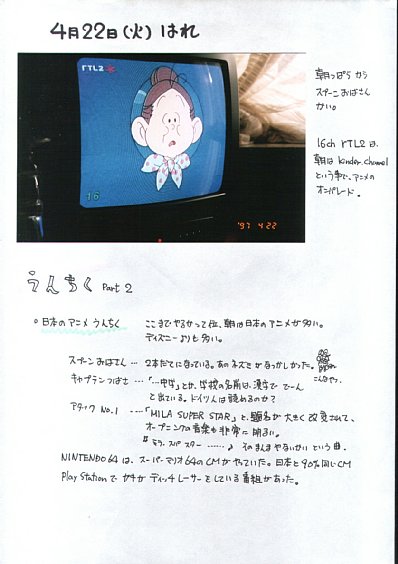 4月22日(火) はれ
rTL2
16
'97 4 22
朝っぱらから
スプーンおばさん
かい。
16ch rTL2は、
朝は kinder channel
という事で、アニメの
オンパレード。
うんちく Part 2
○日本のアニメうんちく
ここまでやるかって位、朝は日本のアニメが多い。
ディズニーよりも多い。
スプーンおばさん… 2本だてになっている。あのネズミがなつかしかった。
こんなやつ。
キャプテンつばさ … 「…中学」とか、学校の名前は、漢字で でーん
と出ている。ドイツ人は読めるのか?
アタック No.1 ‥‥「MILA SUPER STAR」と、題名が大きく改変されて、
オープニングの音楽も非常に明るい。
スーパスター ……♪ そのまんまやないかいという曲。
NINTENDO64は、スーパーマリオ64のCMがやっていた。日本と90%同じCM
Play Stationで ガチガチ リッヂレーサーをしている番組があった。